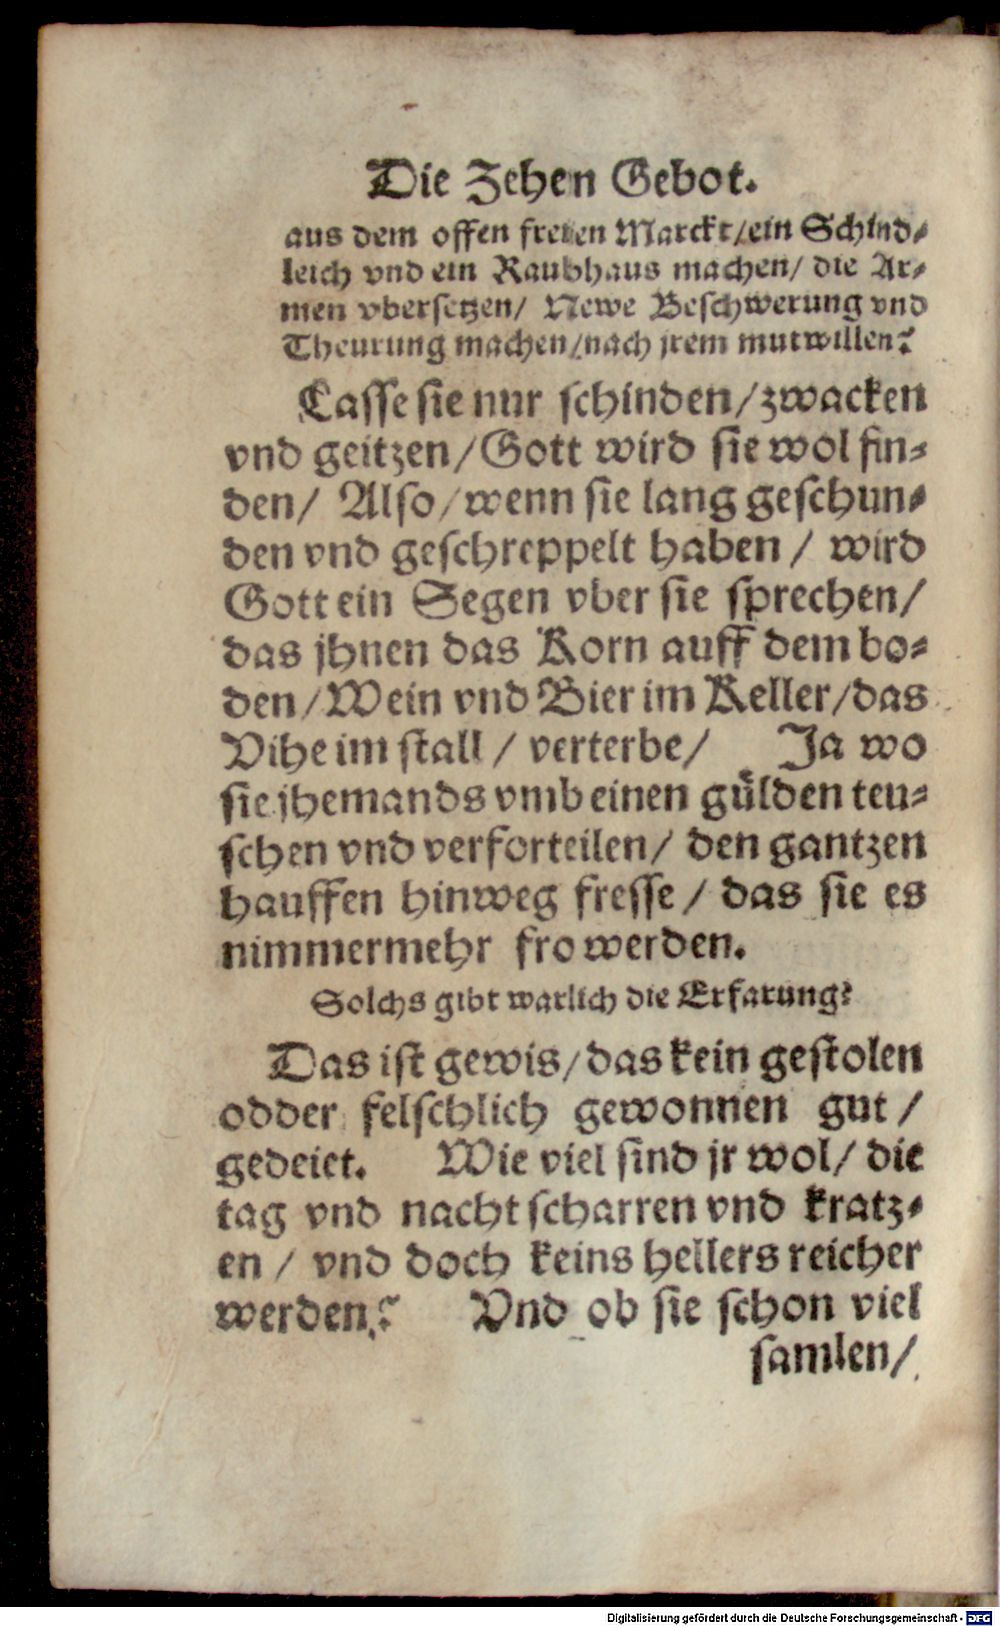 Die Zehen Gebot.
aus dem offen freien Marckt/ein Schind-
leich vnd ein Raubhaus machen/ die Ar-
men vbersetzen/ Newe Beschwerung vnd
Theurung machen/nach jrem mutwillen?
Lasse sie nur schinden/zwacken
vnd geitzen/Gott wird sie wol fin-
den/ Also/wenn sie lang geschun-
den vnd geschreppelt haben / wird
Gott ein Segen vber sie sprechen/
das jhnen das Korn auff dem bo-
den/Wein vnd Bier im Keller/das
Vihe im stall / verterbe/ Ja wo
sie jhemands vmb einen gülden teu-
schen vnd verforteilen/ den gantzen
hauffen hinweg fresse / das sie es
nimmermehr fro werden.
Solchs gibt warlich die Erfarung?
Das ist gewis/das kein gestolen
odder felschlich gewonnen gut /
gedeiet. Wie viel sind jr wol/ die
tag vnd nacht scharren vnd kratz-
en / vnd doch keins hellers reicher
werden? Vnd ob sie schon viel
samlen/
Digitalisierung gefördert durch die Deutsche Forschungsgemeinschaft - DFG